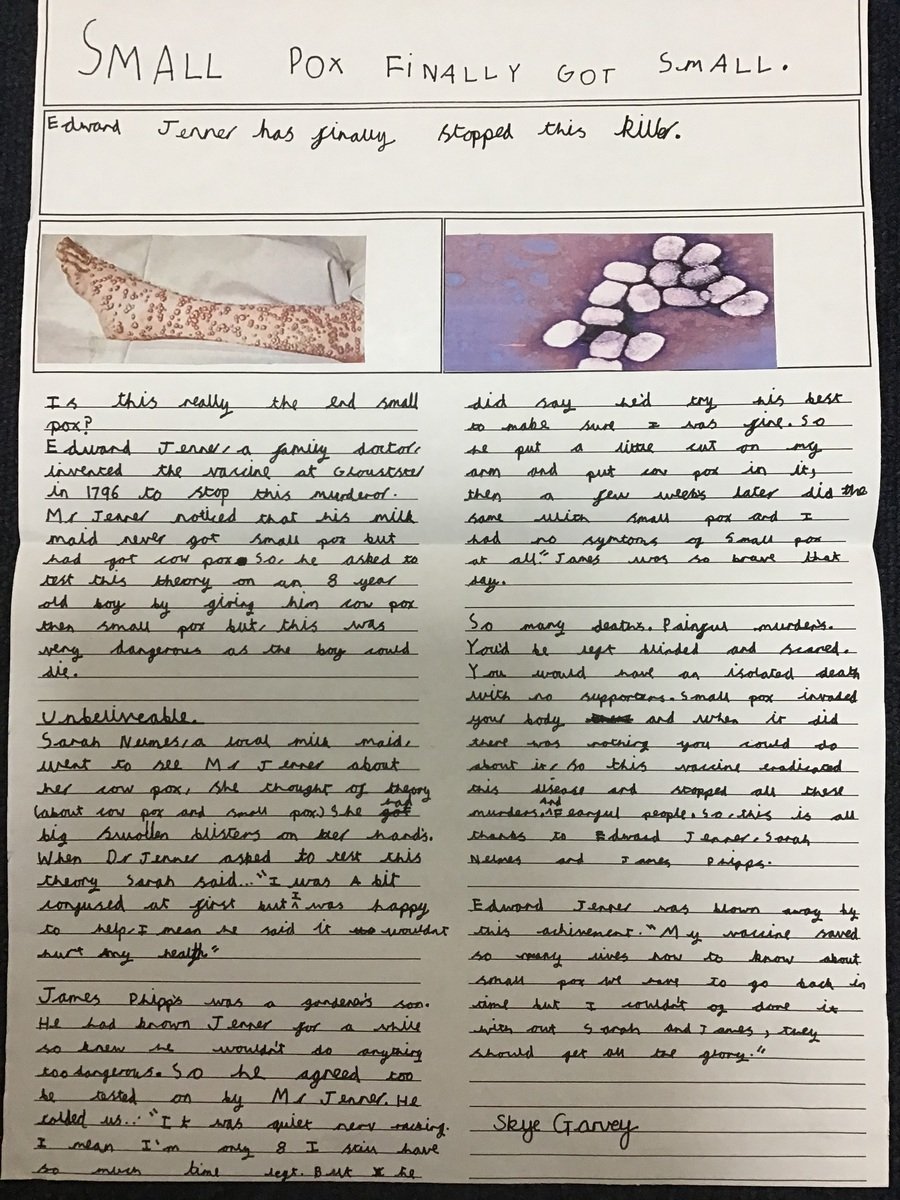 SMALL POX FINALLY GOT SMALL.
Edward Jenner has finally stopped this killer.
Is this really the end small
pox?
Edward Jenner, a family doctor,
invented the vaccine at Gloustster
in 1796 to stop this murderor.
Mr Jenner noticed that his milk
maid never got small pox but
had got cow pox. So, he asked to
test this theory on an 8 year
old boy by giving him cow pox
then small pox but, this was
very dangerous as the boy could
die.
Unbeliveable.
Sarah Nelmes, a local milk maid,
went to see Mr Jenner about
her cow pox, she thought of theory
(about cow pox and small pox) She had
big swollen blisters on her hand's.
When Dr Jenner asked to test this
theory Sarah said..."I was A bit
confused at first but I was happy
to help, I mean he said it wouldn't
hurt my health"
James Phipp's was a gardener's son.
He had known Jenner for a while
so knew he wouldn't do anything
too dangerous. So he agreed too
be tested on by Mr Jenner. He
tolded us..."It was quiet nerv racking.
I mean I'm only 8 I still have
so much time left. But he
did say he'd try his best
to make sure I was fine. So
he put a little cut on my
arm and put cow pox in it,
then a few weeks later did the
same with small pox and I
had no symtoms of Small pox
at all." James was so brave that
day.
So many deaths. Painful murders.
You'd be left blinded and scared.
You would have an isolated death
with no supporters. Small pox invaded
your body and when it did
there was nothing you could do
about it, so this vaccine eradicated
this disease and stopped all these
murders. And Fearful people. So, this is all
thanks to Edward Jenner, Sarah
Nelmes and James Phipps.
Edward Jenner was blown away by
this achievement. "My vaccine saved
so many lives now to know about
small pox we have to go back in
time but I couldn't of done it
with out Sarah and James, they
should get all the glory."
Skye Garvey